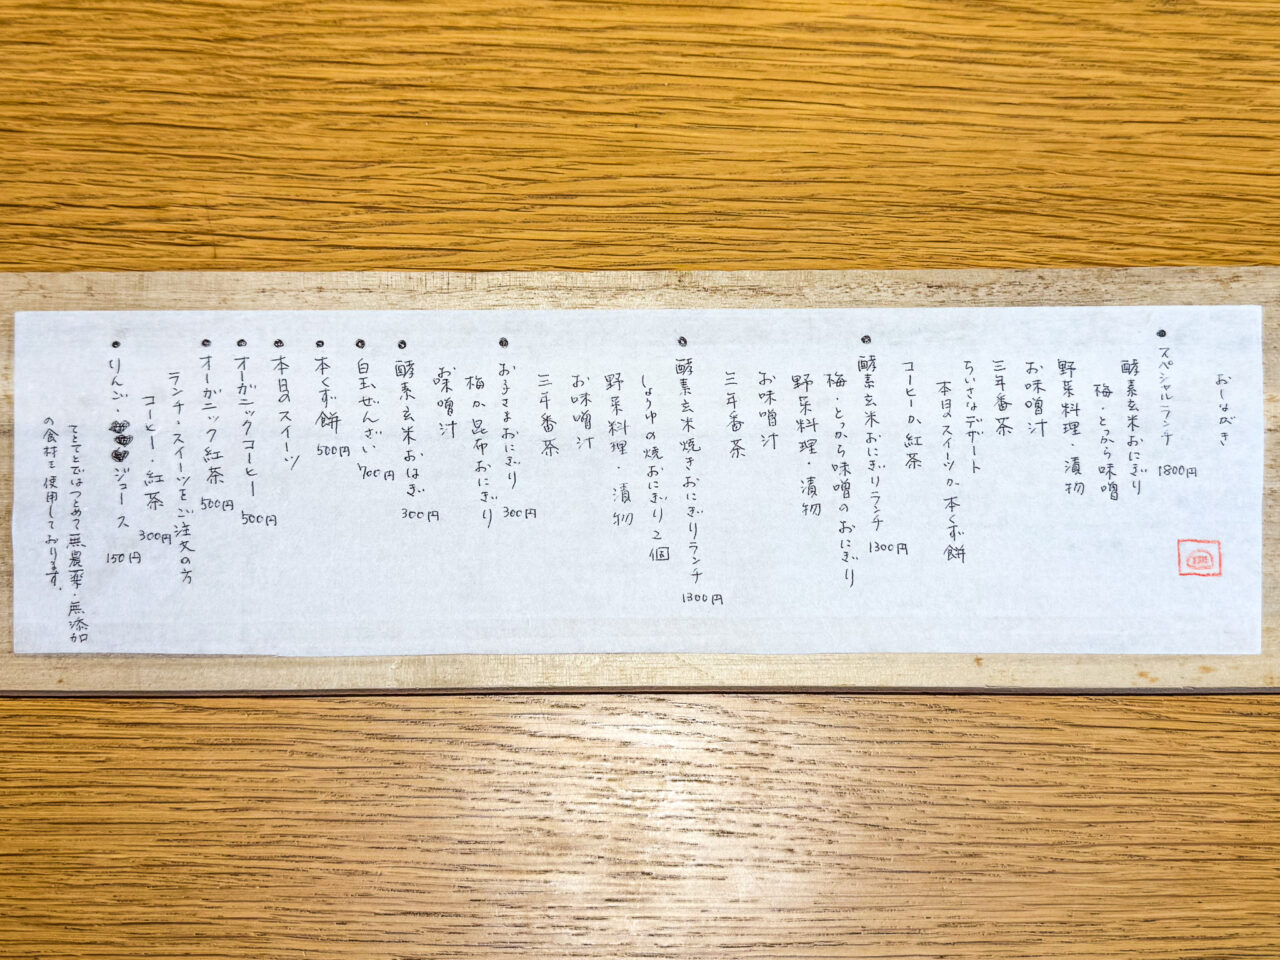 おしながき
●スペシャルランチ 1800円
酵素玄米おにぎり
梅・とうから味噌
野菜料理・漬物
お味噌汁
三年番茶
ちいさなデザート
本日のスイーツか本くず餅
コーヒーか紅茶
●酵素玄米おにぎりランチ 1300円
梅・とうから味噌のおにぎり
野菜料理・漬物
お味噌汁
三年番茶
●酵素玄米焼きおにぎりランチ 1300円
しょうゆの焼おにぎり2個
野菜料理・漬物
お味噌汁
三年番茶
●お子さまおにぎり 300円
梅か昆布おにぎり
お味噌汁
●酵素玄米おはぎ 300円
●白玉ぜんざい 700円
●本くず餅 500円
●本日のスイーツ
●オーガニックコーヒー 500円
●オーガニック紅茶 500円
ランチ・スイーツをご注文の方
コーヒー・紅茶 300円
●りんご・ジュース 150円
てとてとではつとめて無農薬・無添加
の食材を使用しております。